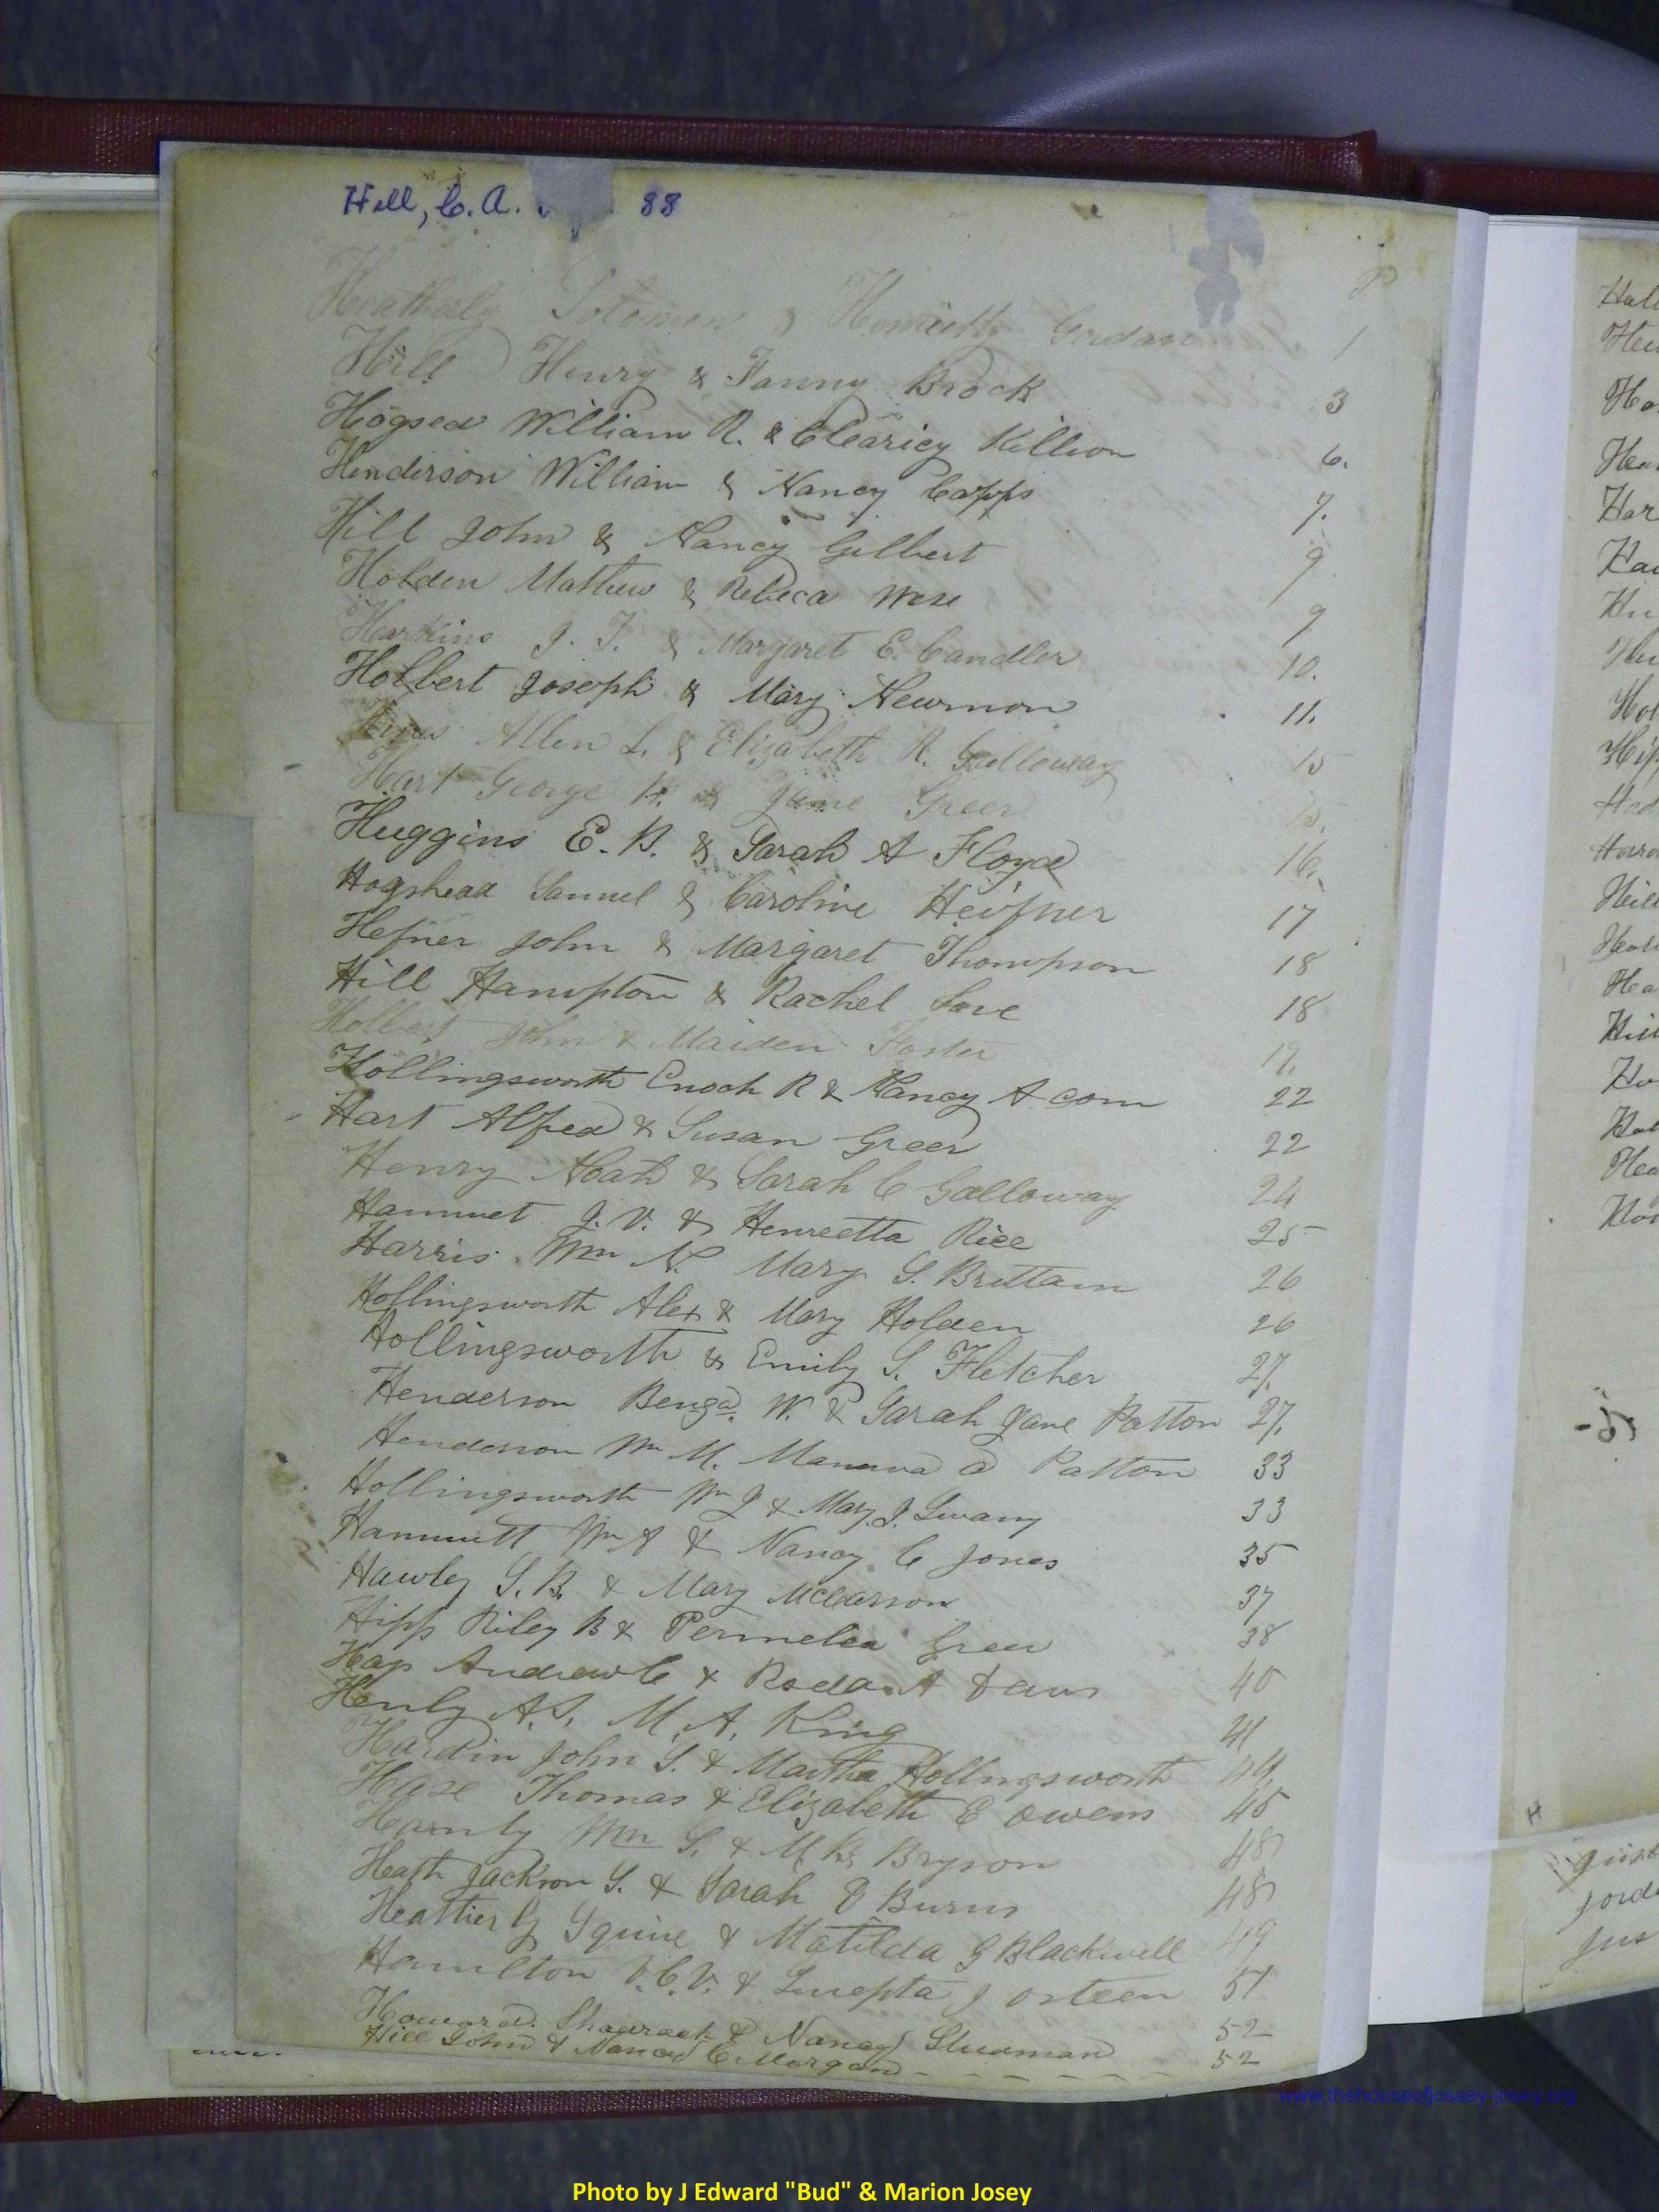 Hill, C. A. 88
P
Heatherly Solomon & Henrietta Gordan 1
Hill Henry & Fanny Brock 3
Hogsed William R. & Clearicy Killion 6.
Henderson William & Nancy Capps 7.
Hill John & Nancy Gilbert 9
Holden Mathew & Rebeca Wise 9
Harkins J. T. & Margaret E. Candler 10.
Holbert Joseph & Mary Newmon 11.
Allen L. & Elizabeth R. Galloway 15
Hart George & Jane Greer 15.
Huggins E. B. & Sarah A Floyd 16.
Hogshead Samuel & Caroline Heifner 17
Hefner John & Margaret Thompson 18
Hill Hampton & Rachel Love 18
Holbert John & Maiden Foster 19.
Hollingsworth Enoch R & Nancy A corn 22
Hart Alfred & Susan Greer 22
Henry Noah & Sarah C Galloway 24
Hammet J. V. & Henreetta Rice 25
Harris Wm N. Mary S. Brittain 26
Hollingsworth Alex & Mary Holden 26
Hollingsworth & Emily S. Fletcher 27.
Henderson Benja. W. & Sarah Jane Patton 27.
Henderson Wm M. Manerva a Patton 33
Hollingsworth Wm J & Mary J. Swany 33
Hammett Wm A & Nancy C Jones 35
Hawley S. B. & Mary 37
Hipp Riley B & Permelea Greer 38
Andrew C & Roda A 40
Henly A. S. M. A. King 41
Hardin John S. & Martha Hollingsworth 44.
Hase Thomas & Elizabeth E owens 45
Wm S. & M Bryson 48
Heath Jackson S. & Sarah E Burns 48
Heatherly Squire & Matilda G Blackwell 49
Hamilton V. C. V. & J osteen 51
Howard Shadrack & Nancy 52
Hill John & Nancy C. Morgan - - - - - - 52
H
www.thehouseofjossey-josey.org
Photo by J Edward "Bud" & Marion Josey